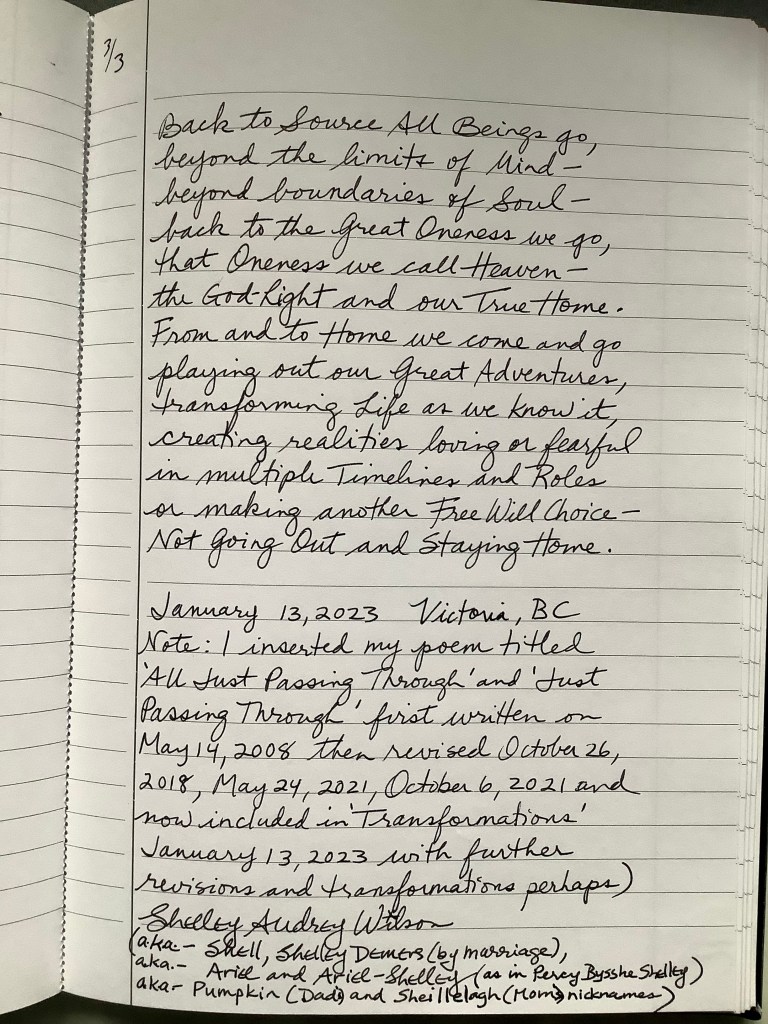 3/3
Back to Source All Beings go,
beyond the limits of Mind –
beyond boundaries of Soul –
back to the Great Oneness we go,
that Oneness we call Heaven –
the God-Light and our True Home.
From and to Home we come and go
playing out our Great Adventures,
transforming Life as we know it,
creating realities loving or fearful
in multiple Timelines and Roles
or making another Free Will Choice –
Not Going Out and Staying Home.
January 13, 2023 Victoria, BC
Note: I inserted my poem titled
'All Just Passing Through' and 'Just
Passing Through' first written on
May 14, 2008 then revised October 26,
2018, May 24, 2021, October 6, 2021 and
now included in 'Transformations'
January 13, 2023 with further
revisions and transformations perhaps)
Shelley Audrey Wilson
(a.k.a. – Shell, Shelley Demers (by marriage),
aka. – Ariel and Ariel-Shelley (as in Percy Bysshe Shelley)
aka – Pumpkin (Dad's) and Sheillelagh (Mom's nicknames)